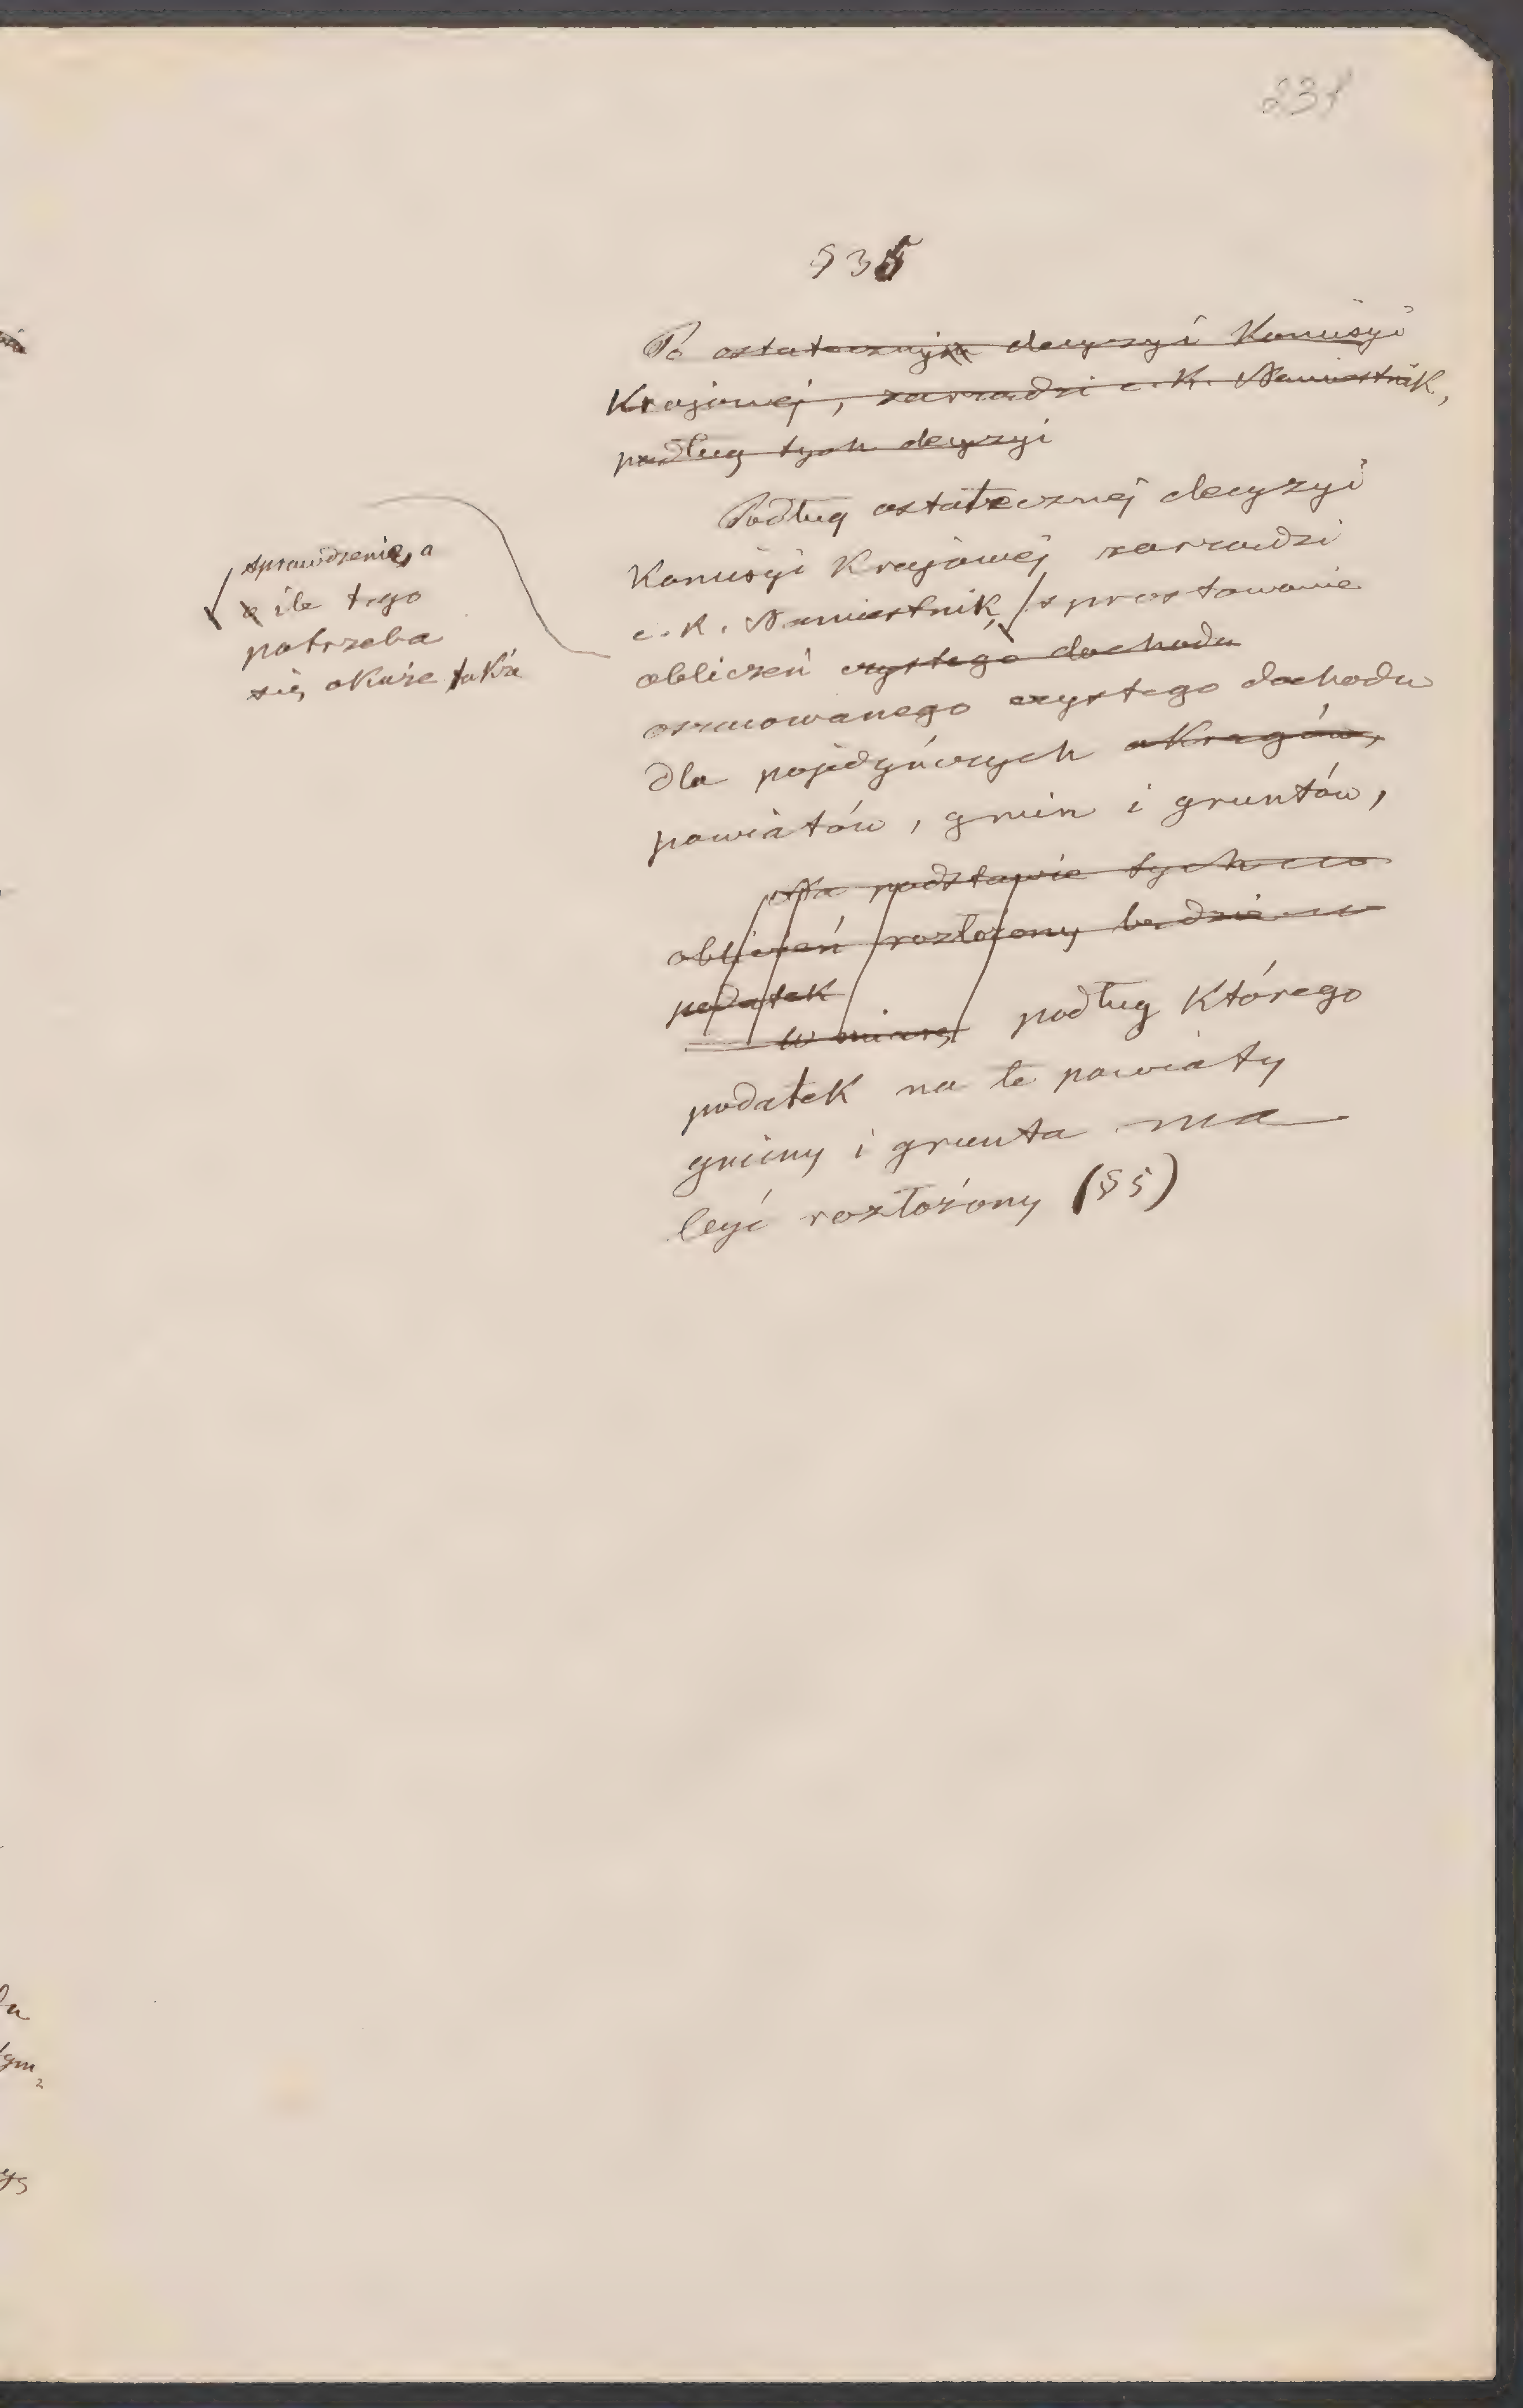 231
§ 35
Po ostatecznej decyzyi Komisyi
Krajowej, zarządzi c. K. Namiestnik,
podług tych decyzyi
Podług ostatecznej decyzyi
Komisyi Krajowej zarządzi
c. K. Namiestnik, sprostowanie
obliczeń czystego dochodu
oznaczowanego czystego dochodu
dla pojedyńczych okręgów,
powiatów, gmin i gruntów,
Na podstawie tych
obliczeń rozłożony będzie
podatek
w miarę podług którego
podatek na te powiaty
gminy i grunta ma
być rozłożony (§ 5)
sprawdzenie, a
o ile tego
potrzeba
się okaże także